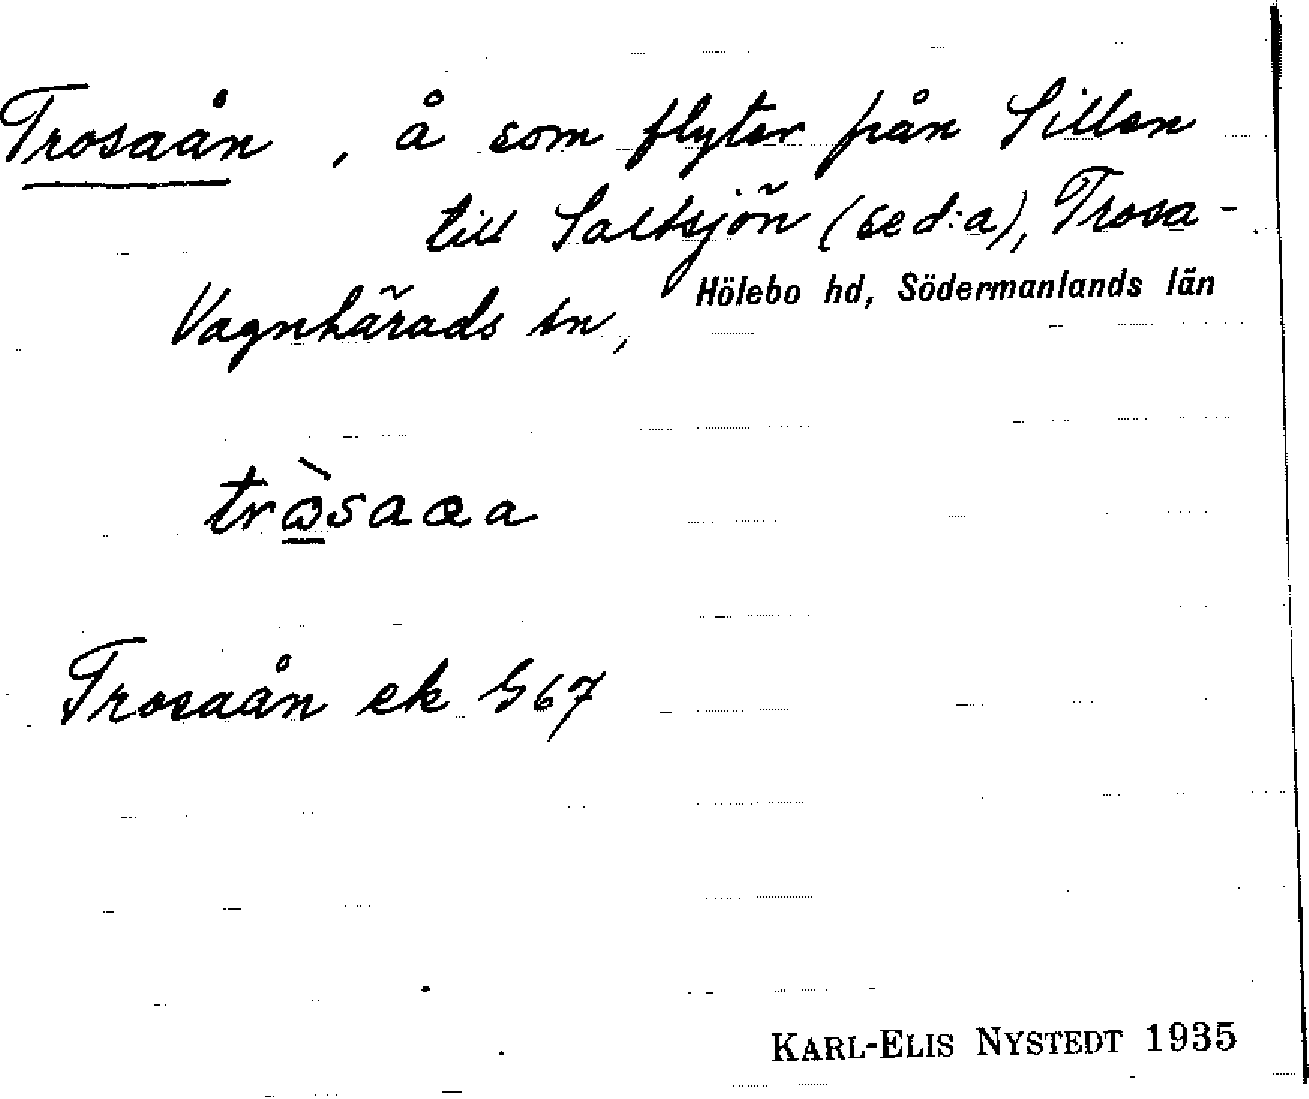 Trosaån, å som flyter från Sillen
till Saltsjön (se d:a), Trosa-
Vagnhärads sn, Hölebo hd, Södermanlands län
Trosaån ek G67
KARL-ELIS NYSTEDT 1935